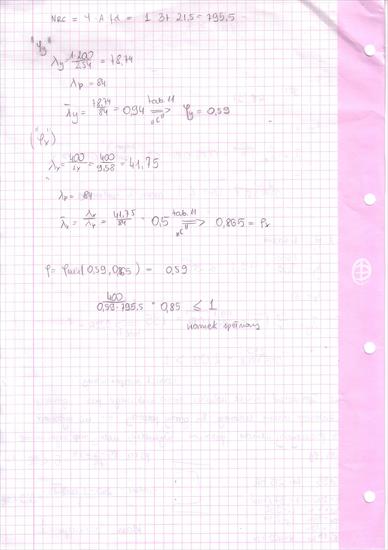 NRC = ψ · A fd = 1 · 37 · 21,5 = 795,5
"φy"
λy = 1·200 / 2,54 = 78,74
λp = 84
λ̄y = 78,74 / 84 = 0,94 tab. 11 "c" ⟹ φy = 0,59
("φx")
λx = 400 / ix = 400 / 9,58 = 41,75
λp = 84
λ̄x = λx / λp = 41,75 / 84 = 0,5 tab. 11 "c" ⟹ 0,865 = φx
φ = φmin (0,59, 0,865) = 0,59
400 / 0,59 · 795,5 = 0,85 ≤ 1
warunek spełniony